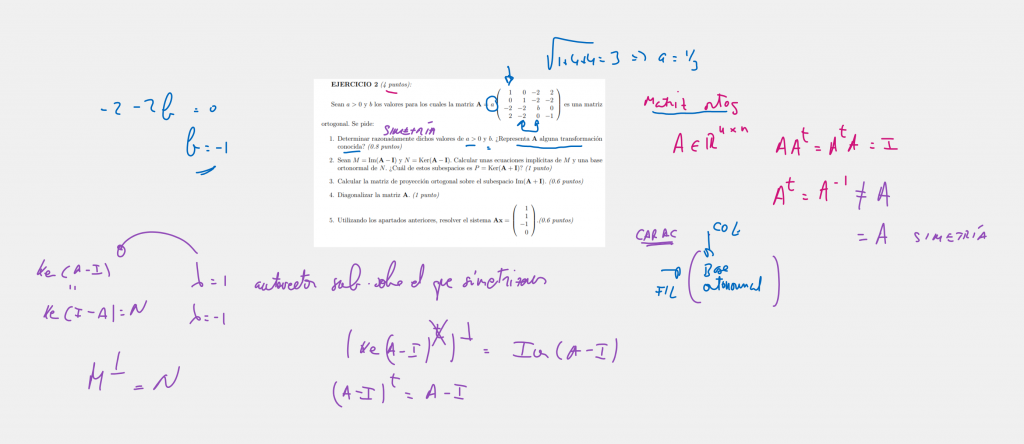 √1+4+4 = 3 => a = 1/3
-2 -2b = 0
b = -1
EJERCICIO 2 (4 puntos):
Sean a > 0 y b los valores para los cuales la matriz A = a
1 0 -2 2
0 1 -2 -2
-2 -2 b 0
2 -2 0 -1
es una matriz
ortogonal. Se pide:
SIMETRÍA
1. Determinar razonadamente dichos valores de a > 0 y b. ¿Representa A alguna transformación
conocida? (0.8 puntos)
2. Sean M = Im(A − I) y N = Ker(A − I). Calcular unas ecuaciones implícitas de M y una base
ortonormal de N. ¿Cuál de estos subespacios es P = Ker(A + I)? (1 punto)
3. Calcular la matriz de proyección ortogonal sobre el subespacio Im(A + I). (0.6 puntos)
4. Diagonalizar la matriz A. (1 punto)
5. Utilizando los apartados anteriores, resolver el sistema Ax =
1
1
-1
0
. (0.6 puntos)
Matriz ortog
A ∈ ℝⁿˣⁿ AAᵗ = AᵗA = I
Aᵗ = A⁻¹ ≠ A
= A SIMETRÍA
CARAC
COL
FIL
Base
ortonormal
Ke(A-I) λ=1 autovector sub. sobre el que simetrizamos
"
Ke(I-A)=N λ=-1
M⊥ = N
(Ke(A-I)ᵗ)⊥ = Im(A-I)
(A-I)ᵗ = A-I